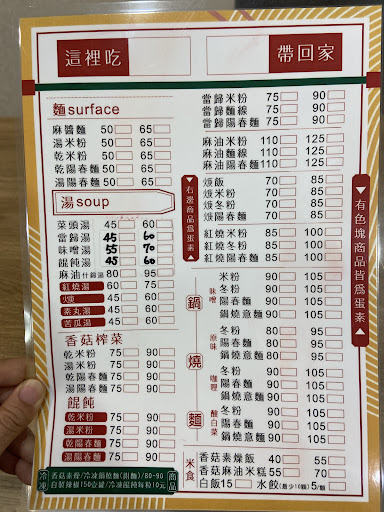 這裡吃 帶回家
麵surface
麻醬麵 50 65
湯米粉 50 65
乾米粉 50 65
乾陽春麵 50 65
湯陽春麵 50 65
湯soup
菜頭湯 45 60
當歸湯 45 60
味噌湯 55 70
餛飩湯 45 60
麻油什錦湯 80 95
紅燒湯 60 75
焿 45 60
素丸湯 45 60
苦瓜湯 45 60
香菇榨菜
乾米粉 75 90
湯米粉 75 90
乾陽春麵 75 90
湯陽春麵 75 90
餛飩
乾米粉 75 90
湯米粉 75 90
乾陽春麵 75 90
湯陽春麵 75 90
當歸米粉 75 90
當歸麵線 75 90
當歸陽春麵 75 90
麻油米粉 110 125
麻油麵線 110 125
麻油陽春麵 110 125
焿飯 70 85
焿米粉 70 85
焿冬粉 70 85
焿陽春麵 70 85
紅燒米粉 90 105
紅燒冬粉 90 105
紅燒陽春麵 90 105
鍋燒麵
味噌
米粉 90 105
冬粉 90 105
陽春麵 90 105
鍋燒意麵 90 105
原味
冬粉 80 95
陽春麵 80 95
鍋燒意麵 80 95
咖哩
冬粉 90 105
陽春麵 90 105
鍋燒意麵 90 105
酸白菜
冬粉 90 105
陽春麵 90 105
鍋燒意麵 90 105
米食
香菇素燥飯 40 55
香菇麻油米糕 55 70
白飯15 水餃(最少10顆)5/顆
右邊商品為蛋素
有色塊商品皆為蛋素
冷凍商品
自製辣椒150壹罐/冷凍餛飩每粒10元